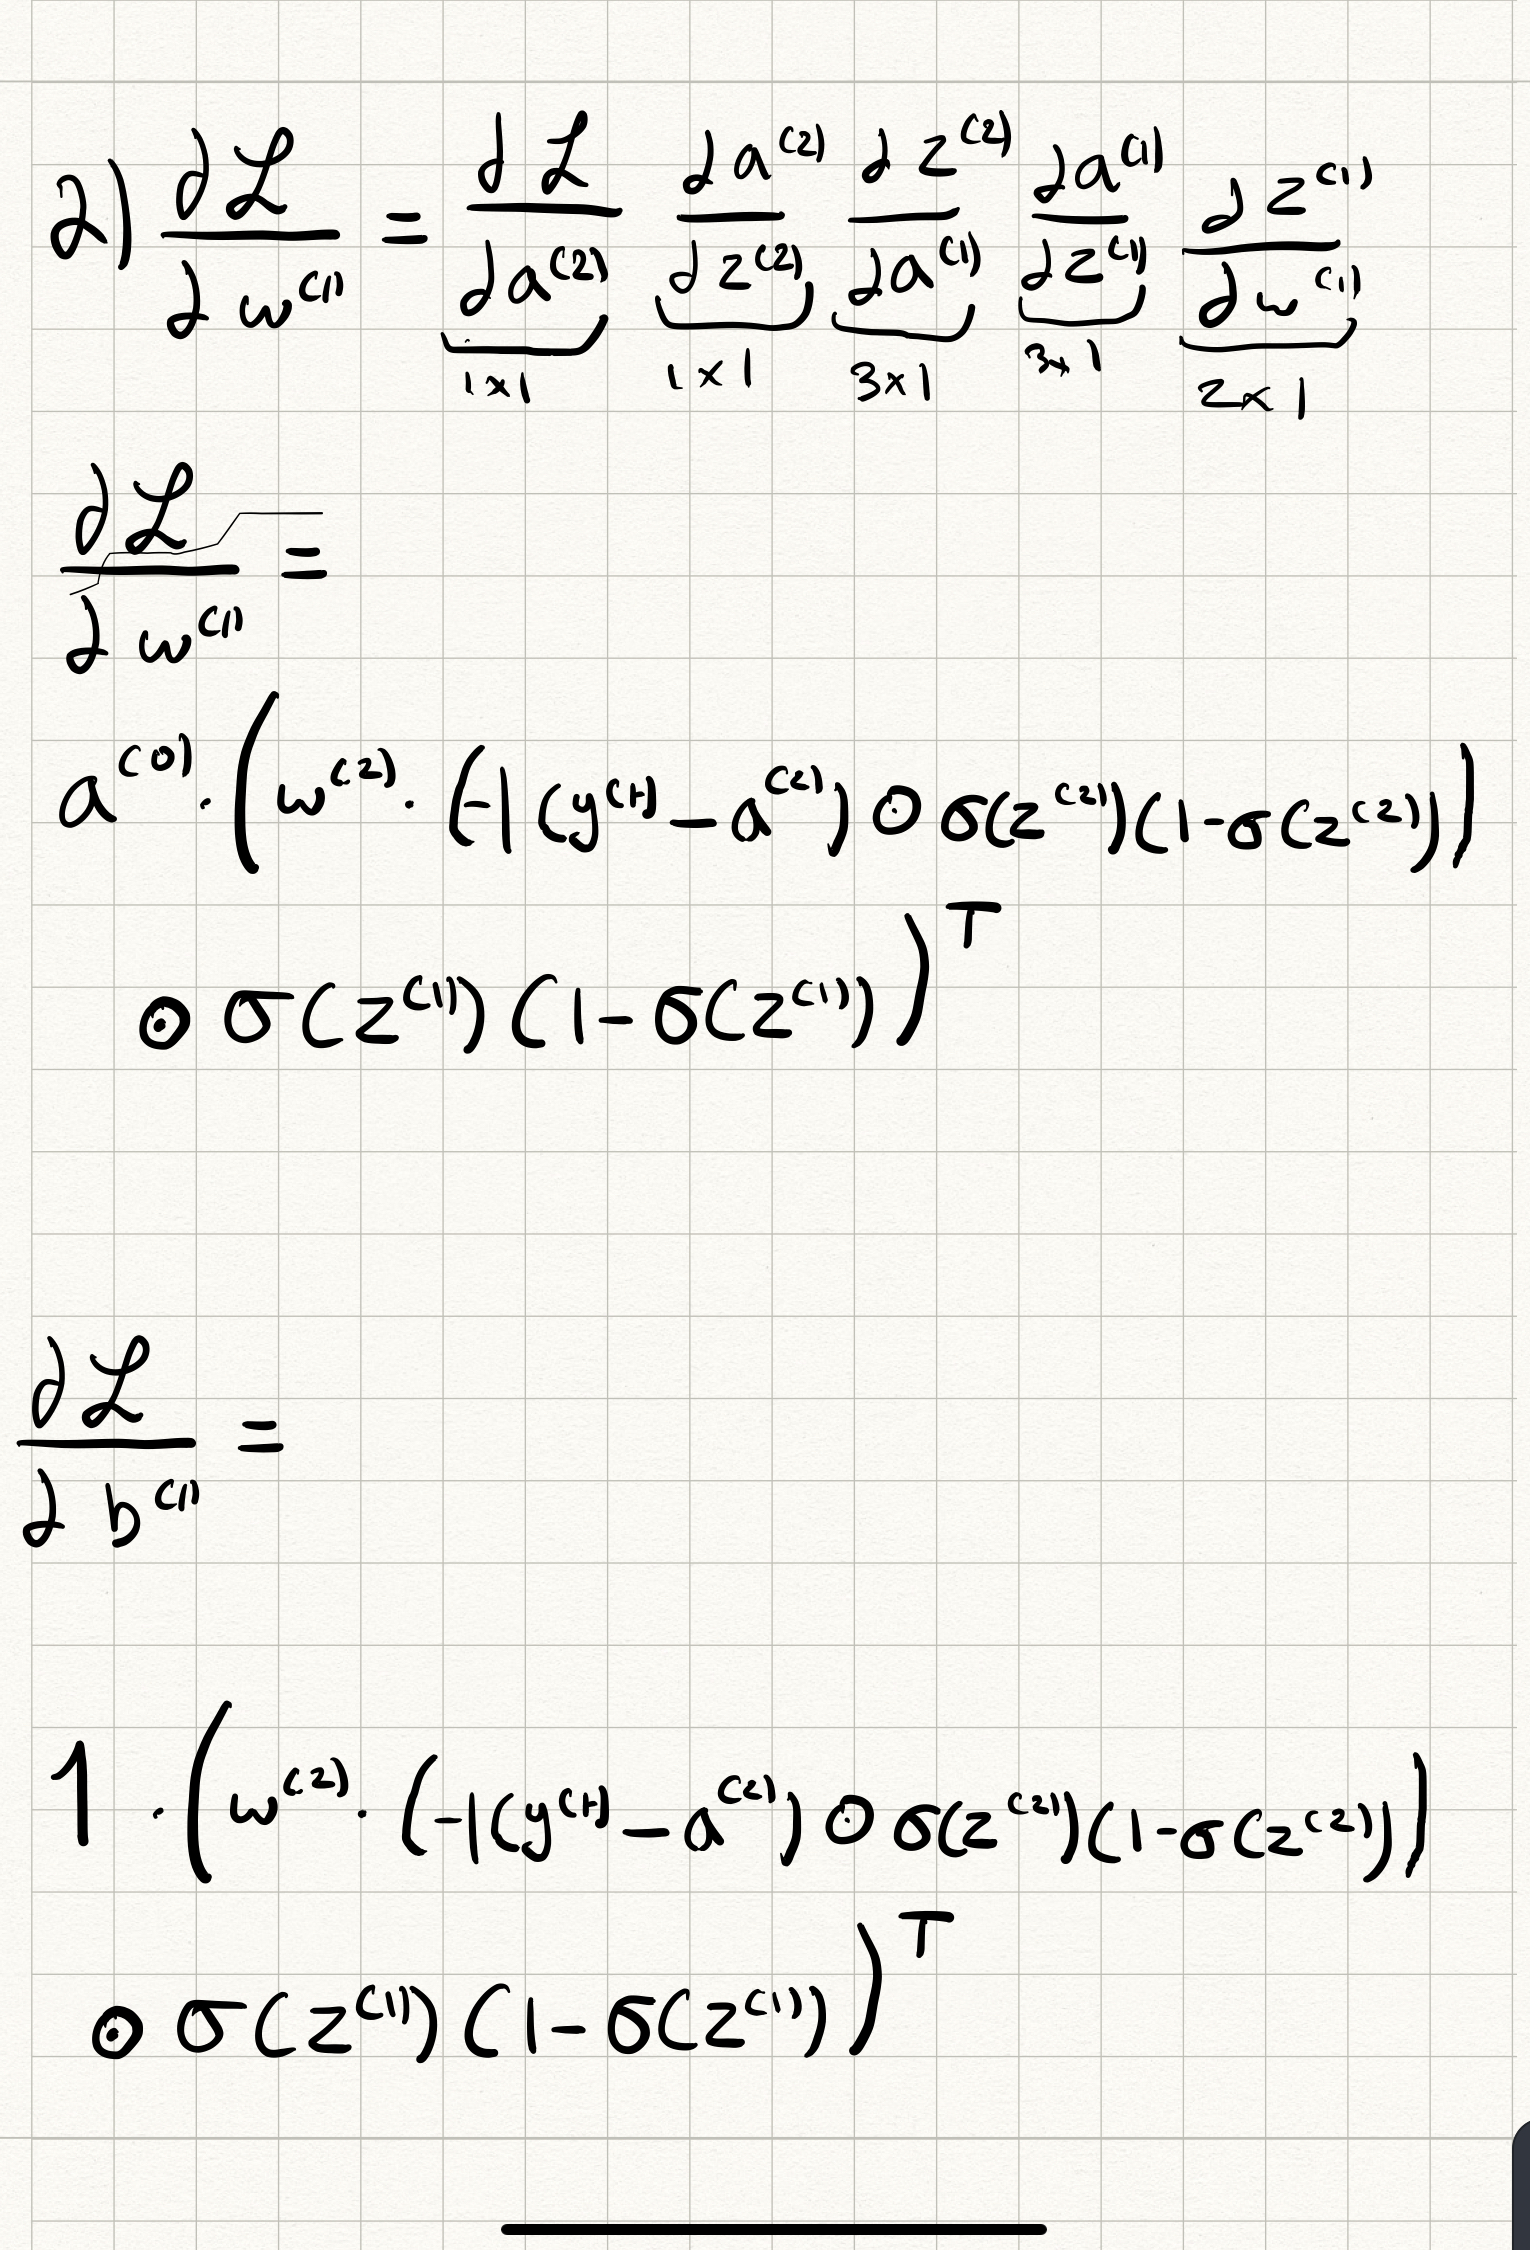 2) ∂ℒ/∂w⁽¹⁾ = ∂ℒ/∂a⁽²⁾ ∂a⁽²⁾/∂z⁽²⁾ ∂z⁽²⁾/∂a⁽¹⁾ ∂a⁽¹⁾/∂z⁽¹⁾ ∂z⁽¹⁾/∂w⁽¹⁾
1×1 1×1 3×1 3×1 2×1
∂ℒ/∂w⁽¹⁾ =
a⁽⁰⁾ · (w⁽²⁾ · (-1(y⁽ᵗ⁾ - a⁽²⁾) ⊙ σ(z⁽²⁾)(1-σ(z⁽²⁾))
⊙ σ(z⁽¹⁾)(1-σ(z⁽¹⁾))ᵀ
∂ℒ/∂b⁽¹⁾ =
1 · (w⁽²⁾ · (-1(y⁽ᵗ⁾ - a⁽²⁾) ⊙ σ(z⁽²⁾)(1-σ(z⁽²⁾))
⊙ σ(z⁽¹⁾)(1-σ(z⁽¹⁾))ᵀ